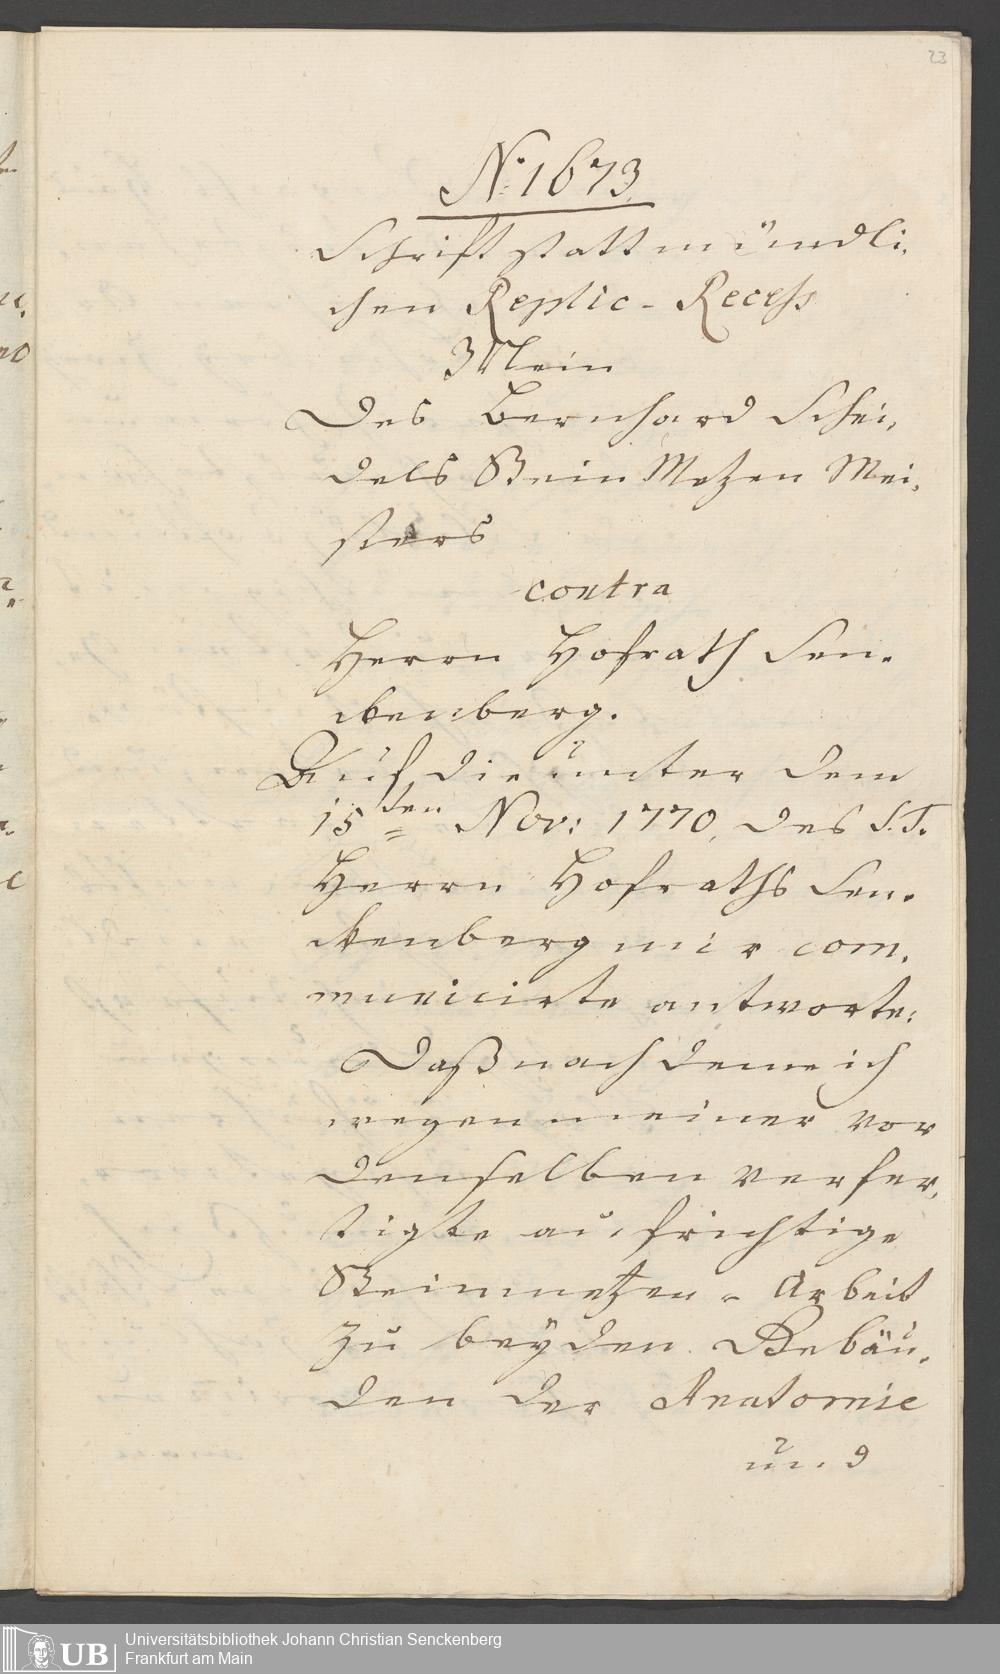 23
No. 1673.
Schrift statt mündli,
chen Replic - Recess
Mein
Des Bernhard Schei,
dels Stein Metzen Mei,
sters
contra
Herrn Hofrath Sen,
ckenberg.
Auf die unter dem
15den Nov: 1770, des S.T.
Herrn Hofraths Sen,
ckenberg mir com,
municirte antworte:
Daß nach deme ich
wegen meiner vor
denselben verfer,
tigte aufrichtige
Steinmetzen - Arbeit
zu beÿden Gebäu,
den der Anatomie
und
UB
Universitätsbibliothek Johann Christian Senckenberg
Frankfurt am Main